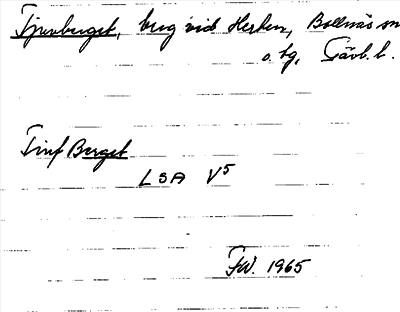 Tjuvberget, berg vid Herten, Bollnäs sn
o. hg, Gävl. l.
Tiuf Berget
LSA V5
FW. 1965